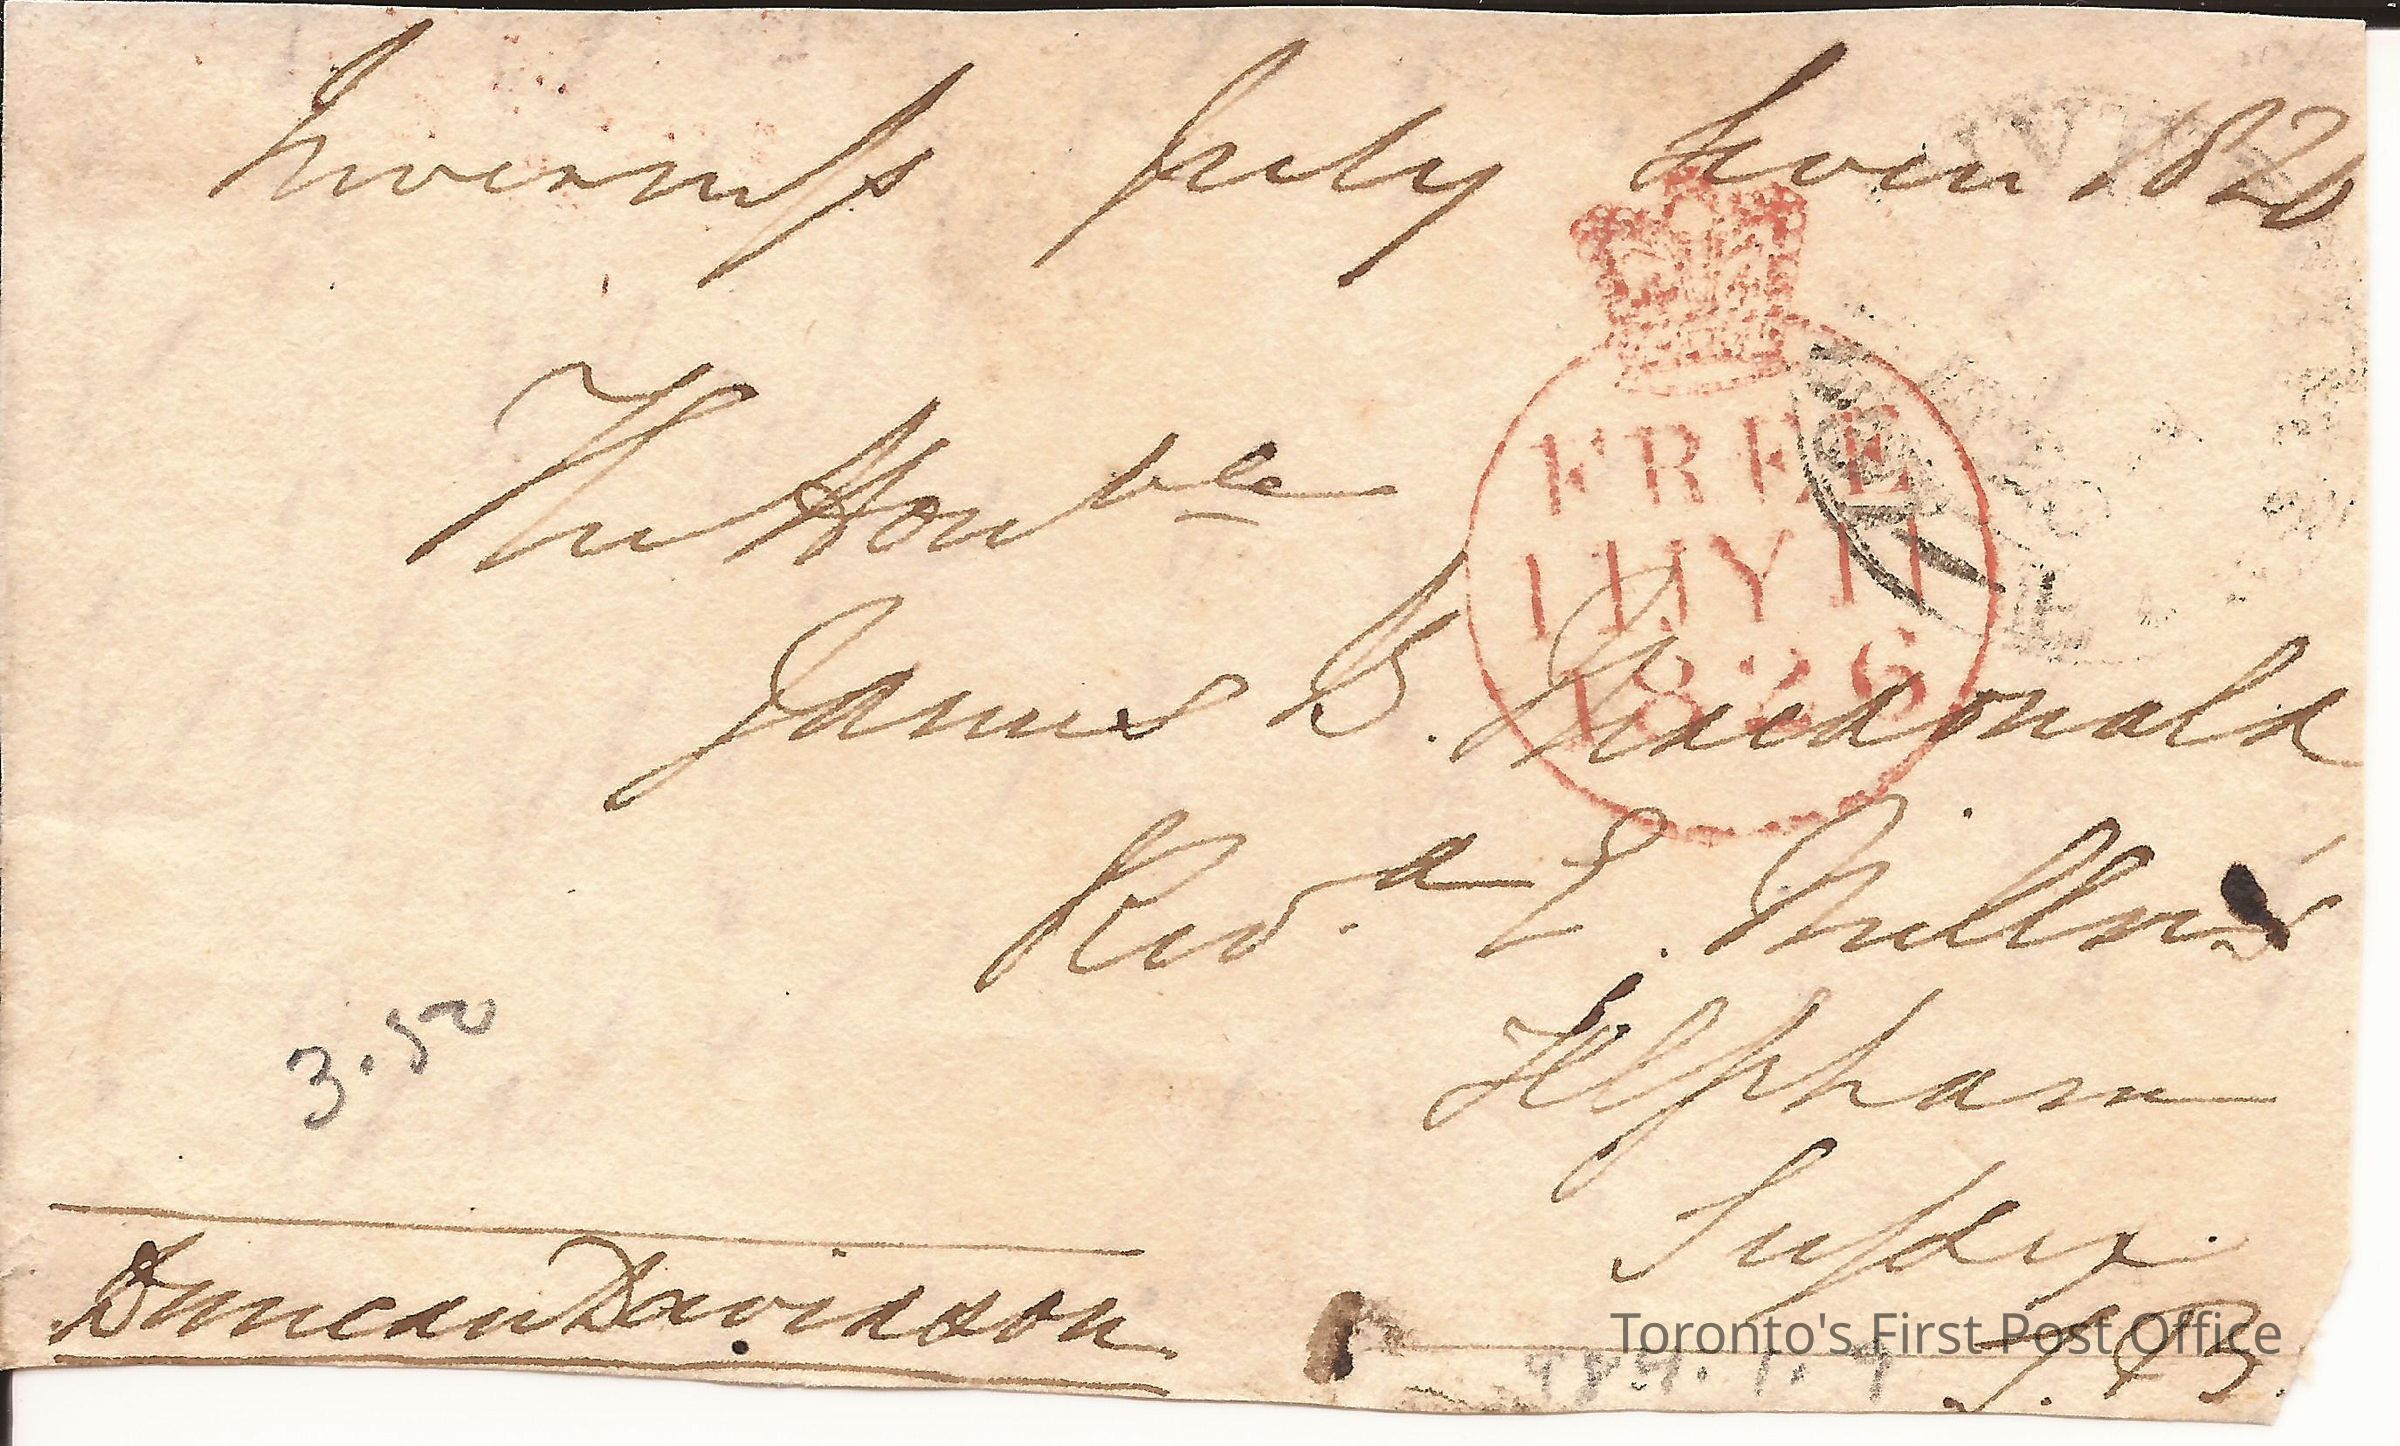 Inverness July seven 1826
The Honble
James B. Macdonald
Revd. L. Millner's
FREE
11 JY 11
1826
Felpham
Sussex
3.50
Duncan Davidson
Toronto's First Post Office